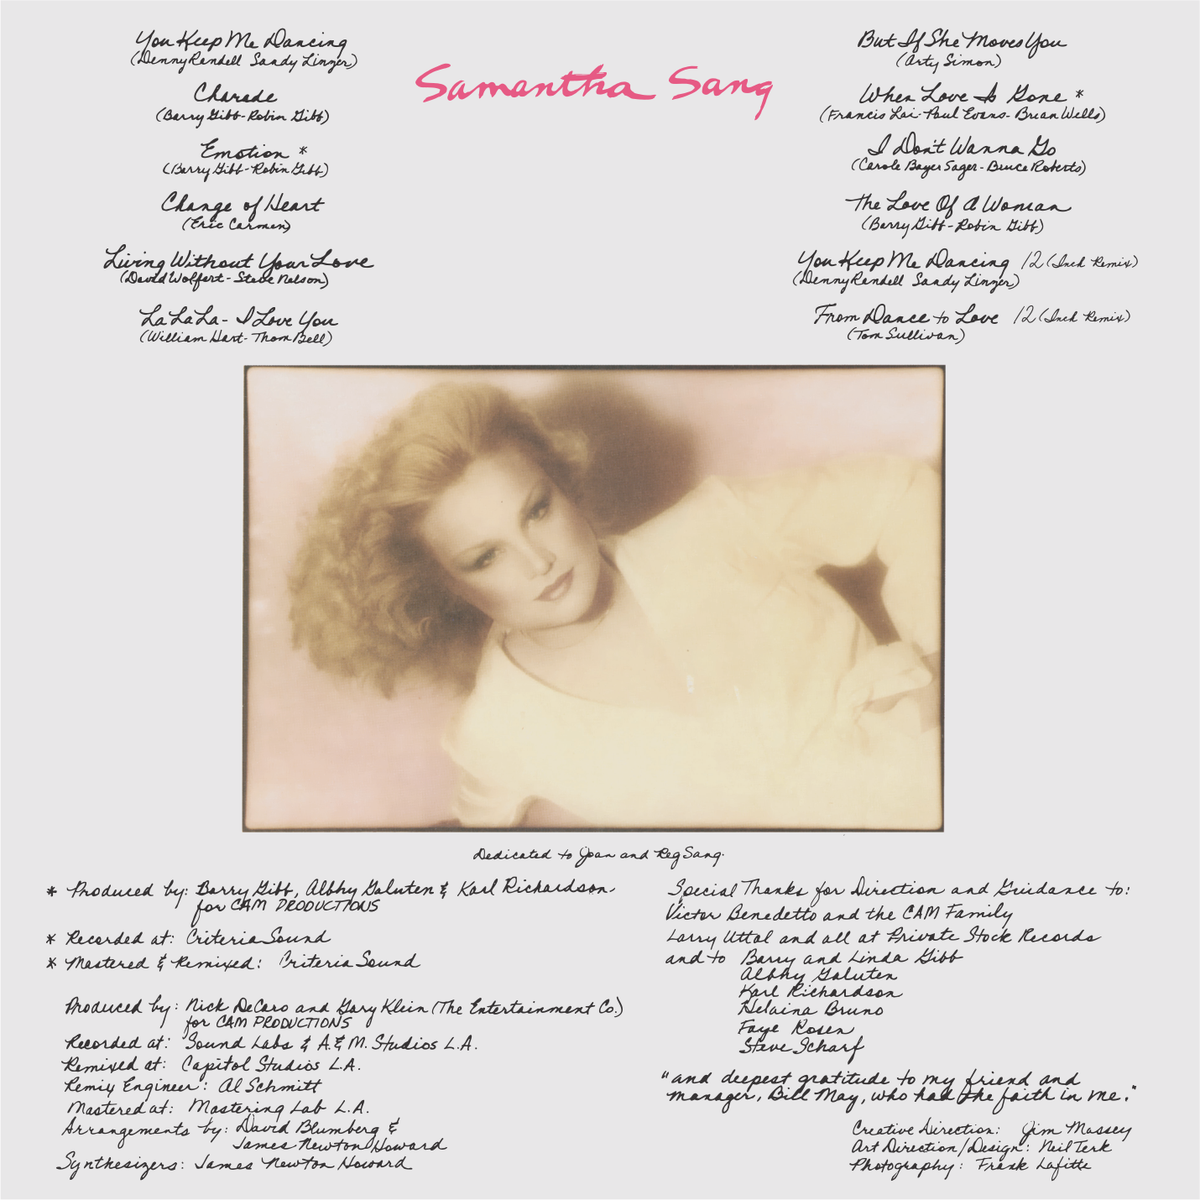 Samantha Sang
You Keep Me Dancing
(Denny Randell Sandy Linzer)
Charade
(Barry Gibb-Robin Gibb)
Emotion *
(Barry Gibb-Robin Gibb)
Change of Heart
(Eric Carmen)
Living Without Your Love
(David Wolfert-Steve Nelson)
La La La - I Love You
(William Hart-Thom Bell)
But If She Moves You
(Arty Simon)
When Love Is Gone *
(Francis Lai-Paul Evans-Brian Wells)
I Don't Wanna Go
(Carole Bayer Sager-Bruce Roberts)
The Love Of A Woman
(Barry Gibb-Robin Gibb)
You Keep Me Dancing 12 (Inch Remix)
(Denny Randell Sandy Linzer)
From Dance to Love 12 (Inch Remix)
(Tom Sullivan)
Dedicated to Joan and Reg Sang.
* Produced by: Barry Gibb, Albhy Galuten & Karl Richardson.
for CAM PRODUCTIONS
* Recorded at: Criteria Sound
* Mastered & Remixed: Criteria Sound
Produced by: Nick DeCaro and Gary Klein (The Entertainment Co.)
for CAM PRODUCTIONS
Recorded at: Sound Labs & A.& M. Studios L.A.
Remixed at: Capitol Studios L.A.
Remix Engineer: Al Schmitt
Mastered at: Mastering Lab L.A.
Arrangements by: David Blumberg &
James Newton Howard
Synthesizers: James Newton Howard
Special Thanks for Direction and Guidance to:
Victor Benedetto and the CAM Family
Larry Uttal and all at Private Stock Records
and to Barry and Linda Gibb
Albhy Galuten
Karl Richardson
Helaina Bruno
Faye Rosen
Steve Scharf
"and deepest gratitude to my friend and
manager, Bill May, who had the faith in me."
Creative Direction: Jim Massey
Art Direction/Design: Neil Terk
Photography: Frank Lafitte